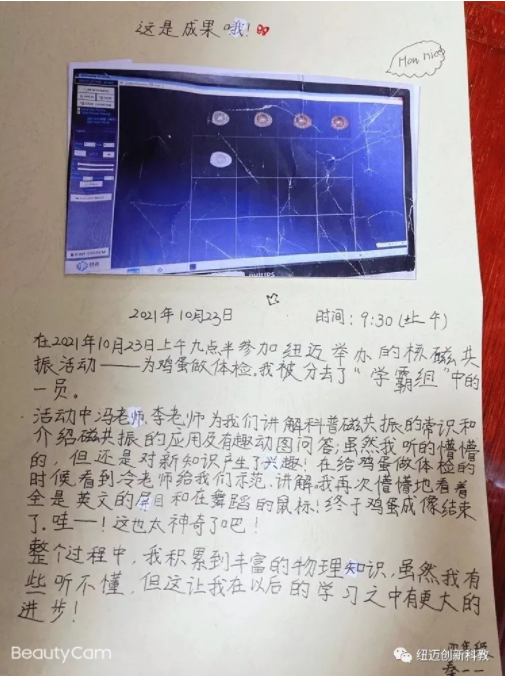 这是成果哦!
How nice
PHILIPS
2021年10月23日 时间:9:30(上午)
在2021年10月23日上午九点半参加纽迈举办的核磁共
振活动——为鸡蛋做体检。我被分去了“学霸组”中的
一员。
活动中冯老师,李老师为我们讲解科普磁共振的常识和
介绍磁共振的应用及有趣动图问答;虽然我听的懵懵
的,但还是对新知识产生了兴趣!在给鸡蛋做体检的
时候看到冷老师给我们示范.讲解我再次懵懵地看着
全是英文的屏目和在舞蹈的鼠标!终于鸡蛋成像结束
了.哇—!这也太神奇了吧!
整个过程中,我积累到丰富的物理知识,虽然我有
些听不懂,但这让我在以后的学习之中有更大的
进步!
BeautyCam
纽迈创新科教